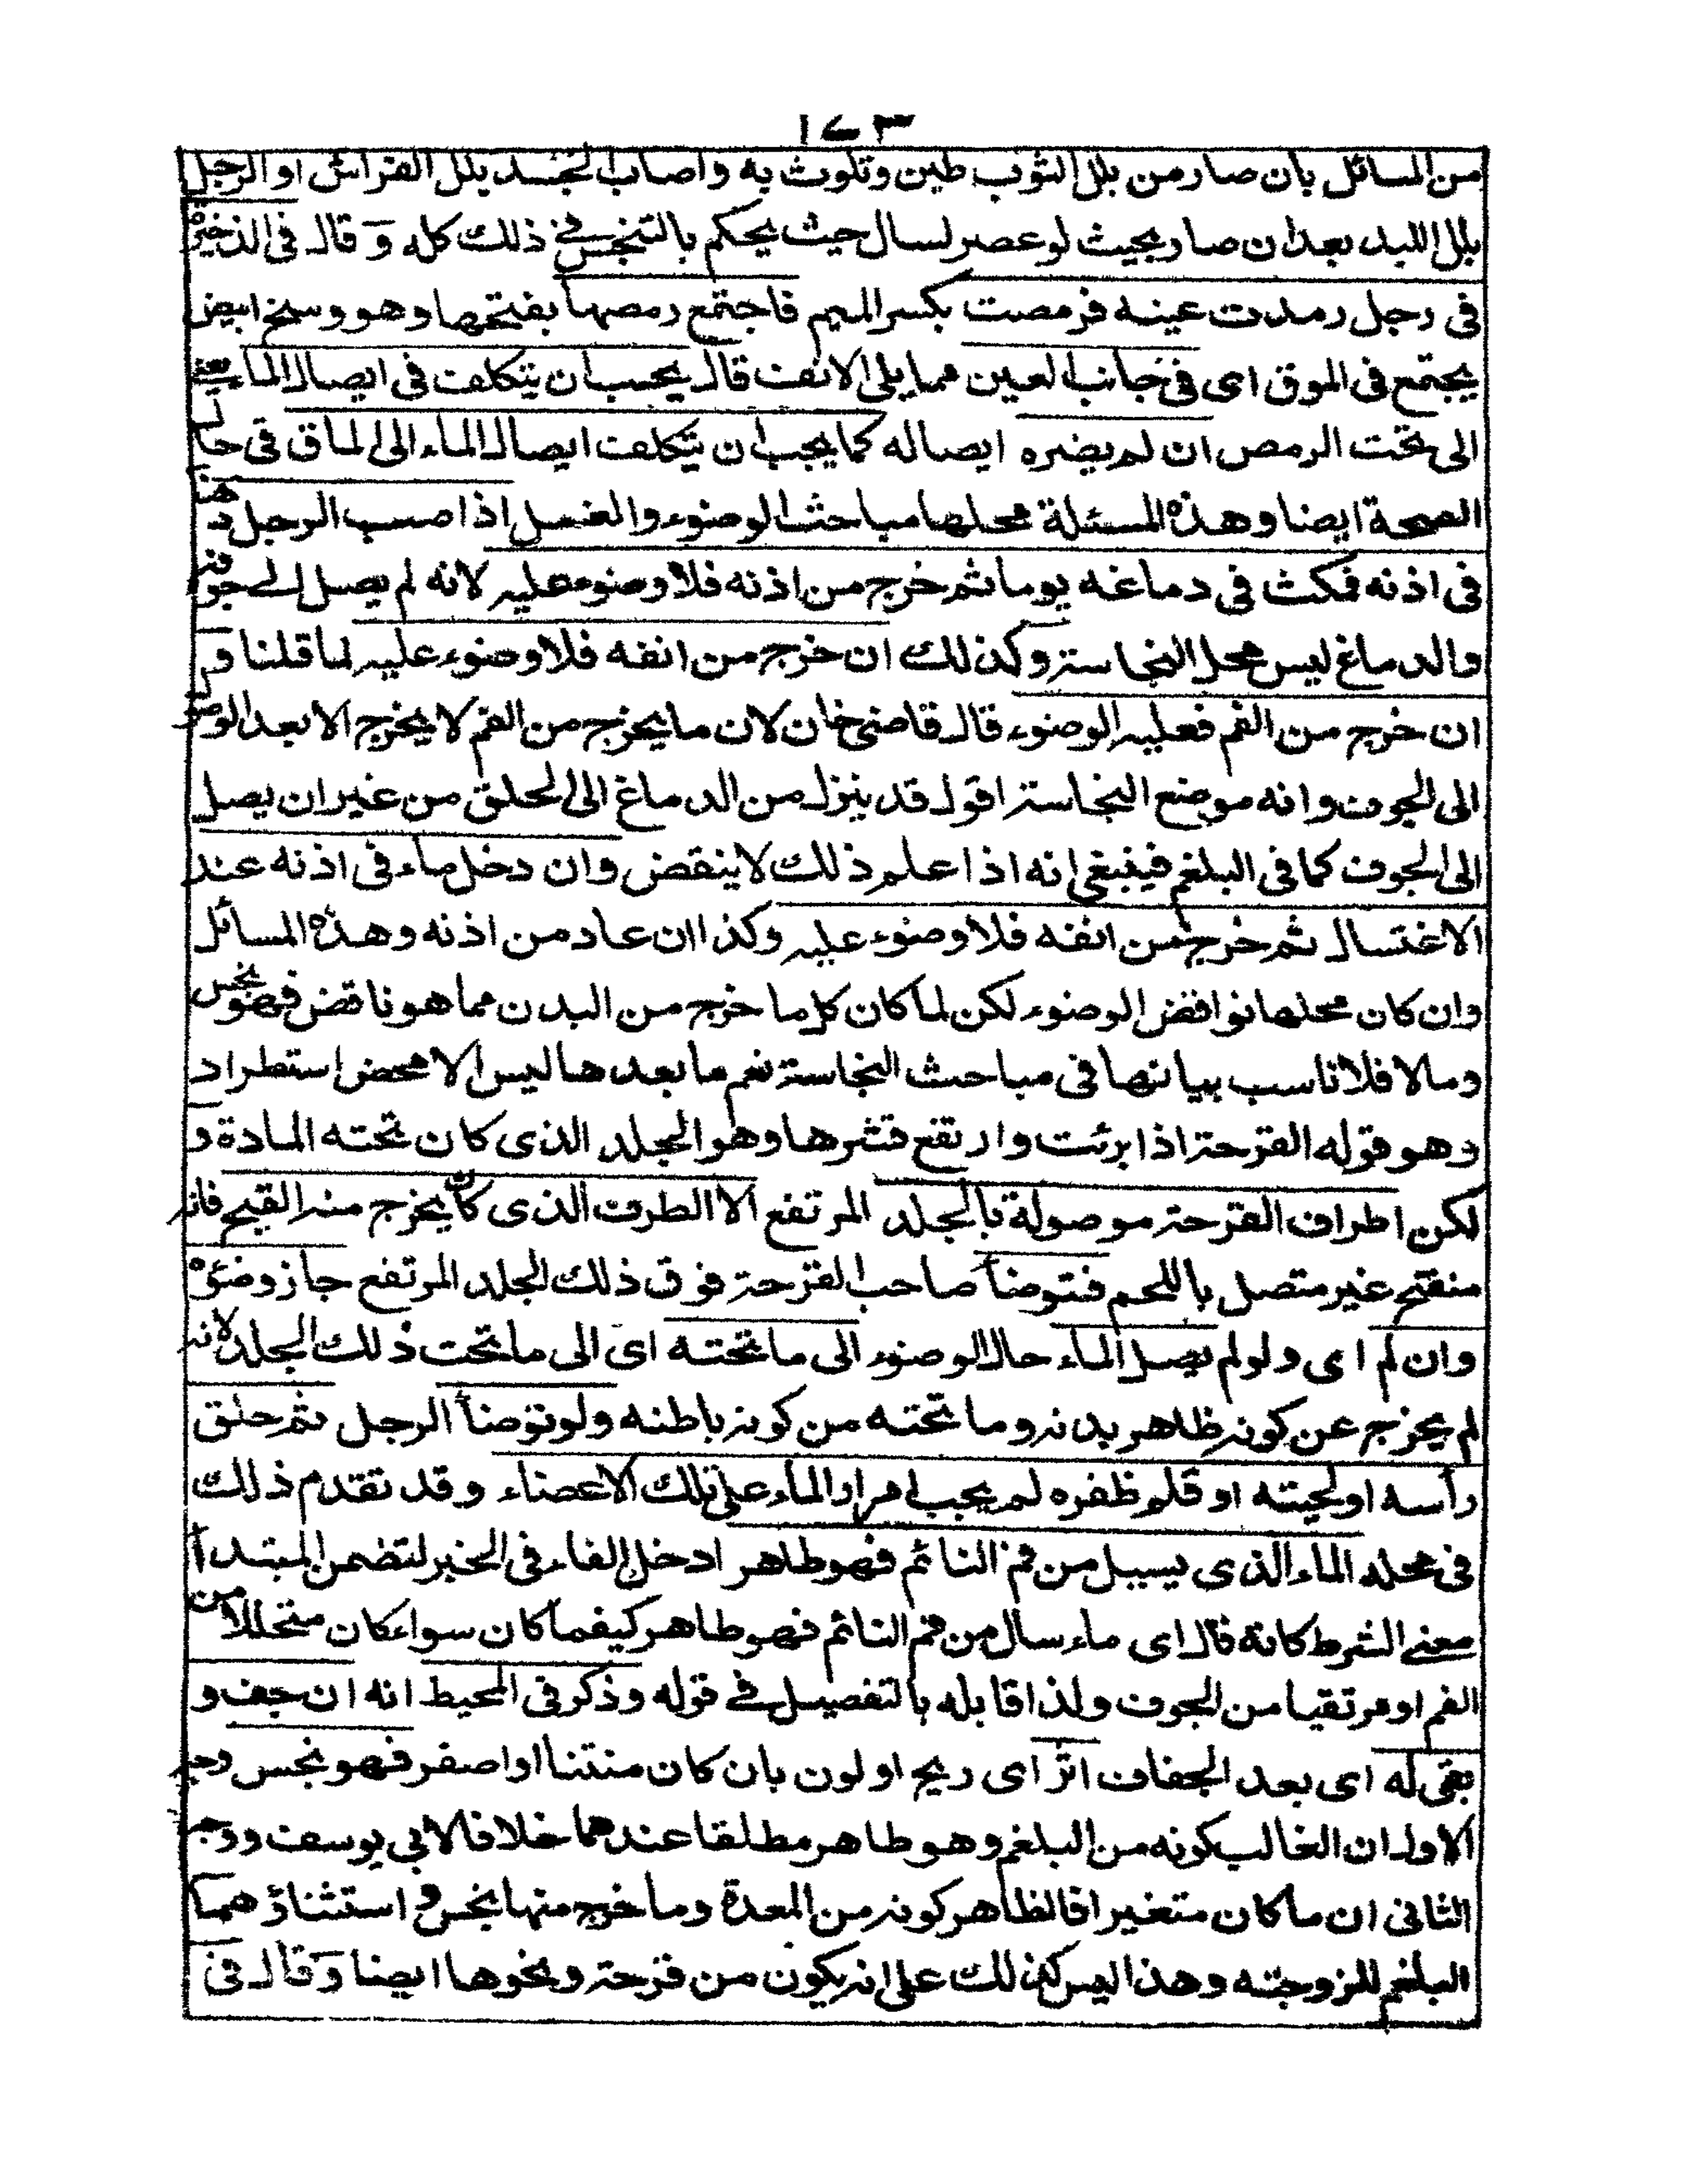 ١٧٣
من المسائل بان صار من بلل الثوب طين وتلوث به واصاب الجسد بلل الفراش او الرجل
بلل اللبد بعد ان صار بحيث لو عصر لسال حيث يحكم بالتنجس في ذلك كله وقال فى الذخيرة
فى رجل رمدت عينه فرمصت بكسر الميم فاجتمع رمصها بفتحها وهو وسخ ابيض
يجتمع فى الموق اى فى جانب العين مما يلى الانف قال يجب ان يتكلف فى ايصال الماء يعنى
الى تحت الرمص ان لم يضره ايصاله كما يجب ان يتكلف ايصال الماء الى الماق فى حال
الصحة ايضا وهذه المسئلة محلها مباحث الوضوء والغسل اذا صب الرجل دهنا
فى اذنه فمكث فى دماغه يوما ثم خرج من اذنه فلا وضوء عليه لانه لم يصل الى جوفه
والدماغ ليس محل النجاسة وكذلك ان خرج من انفه فلا وضوء عليه لما قلنا و
ان خرج من الفم فعليه الوضوء قال قاضى خان لان ما يخرج من الفم لا يخرج الا بعد الوصول
الى الجوف وانه موضع النجاسة اقول قد ينزل من الدماغ الى الحلق من غير ان يصل
الى الجوف كما فى البلغم فينبغى انه اذا علم ذلك لا ينقض وان دخل ماء فى اذنه عند
الاغتسال ثم خرج من انفه فلا وضوء عليه وكذا ان عاد من اذنه وهذه المسائل
وان كان محلها نواقض الوضوء لكن لما كان كل ما خرج من البدن مما هو ناقض فهو نجس
وما لا فلا ناسب بيانها فى مباحث النجاسة نعم ما بعدها ليس الا محض استطراد
وهو قوله القرحة اذا برئت وارتفع قشرها وهو الجلد الذى كان تحته المادة و
لكن اطراف القرحة موصولة بالجلد المرتفع الا الطرف الذى كان يخرج منه القيح فانه
منفتح غير متصل باللحم فتوضأ صاحب القرحة فوق ذلك الجلد المرتفع جاز وضوئه
وان لم اى ولو لم يصل الماء حال الوضوء الى ما تحته اى الى ما تحت ذلك الجلد لانه
لم يخرج عن كونه ظاهر بدنه وما تحته من كونه باطنه ولو توضأ الرجل ثم حلق
رأسه او لحيته او قلم ظفره لم يجب امرار الماء على تلك الاعضاء وقد تقدم ذلك
فى محله الماء الذى يسيل من فم النائم فهو طاهر ادخل الفاء فى الخبر لتضمن المبتدأ
معنى الشرط كانه قال اى ماء سال من فم النائم فهو طاهر كيفما كان سواء كان متحللا من
الفم او مرتقيا من الجوف ولذا قابله بالتفصيل في قوله وذكر فى المحيط انه ان جف و
بقى له اى بعد الجفاف اثر اى ريح او لون بان كان منتنا او اصفر فهو نجس وجه
الاول ان الغالب كونه من البلغم وهو طاهر مطلقا عندهما خلافا لابي يوسف ووجه
الثانى ان ما كان متغيرا فالظاهر كونه من المعدة وما خرج منها نجس و استثناؤهما
البلغم للزوجته وهذا ليس كذلك على انه يكون من قرحة ونحوها ايضا وقال فى